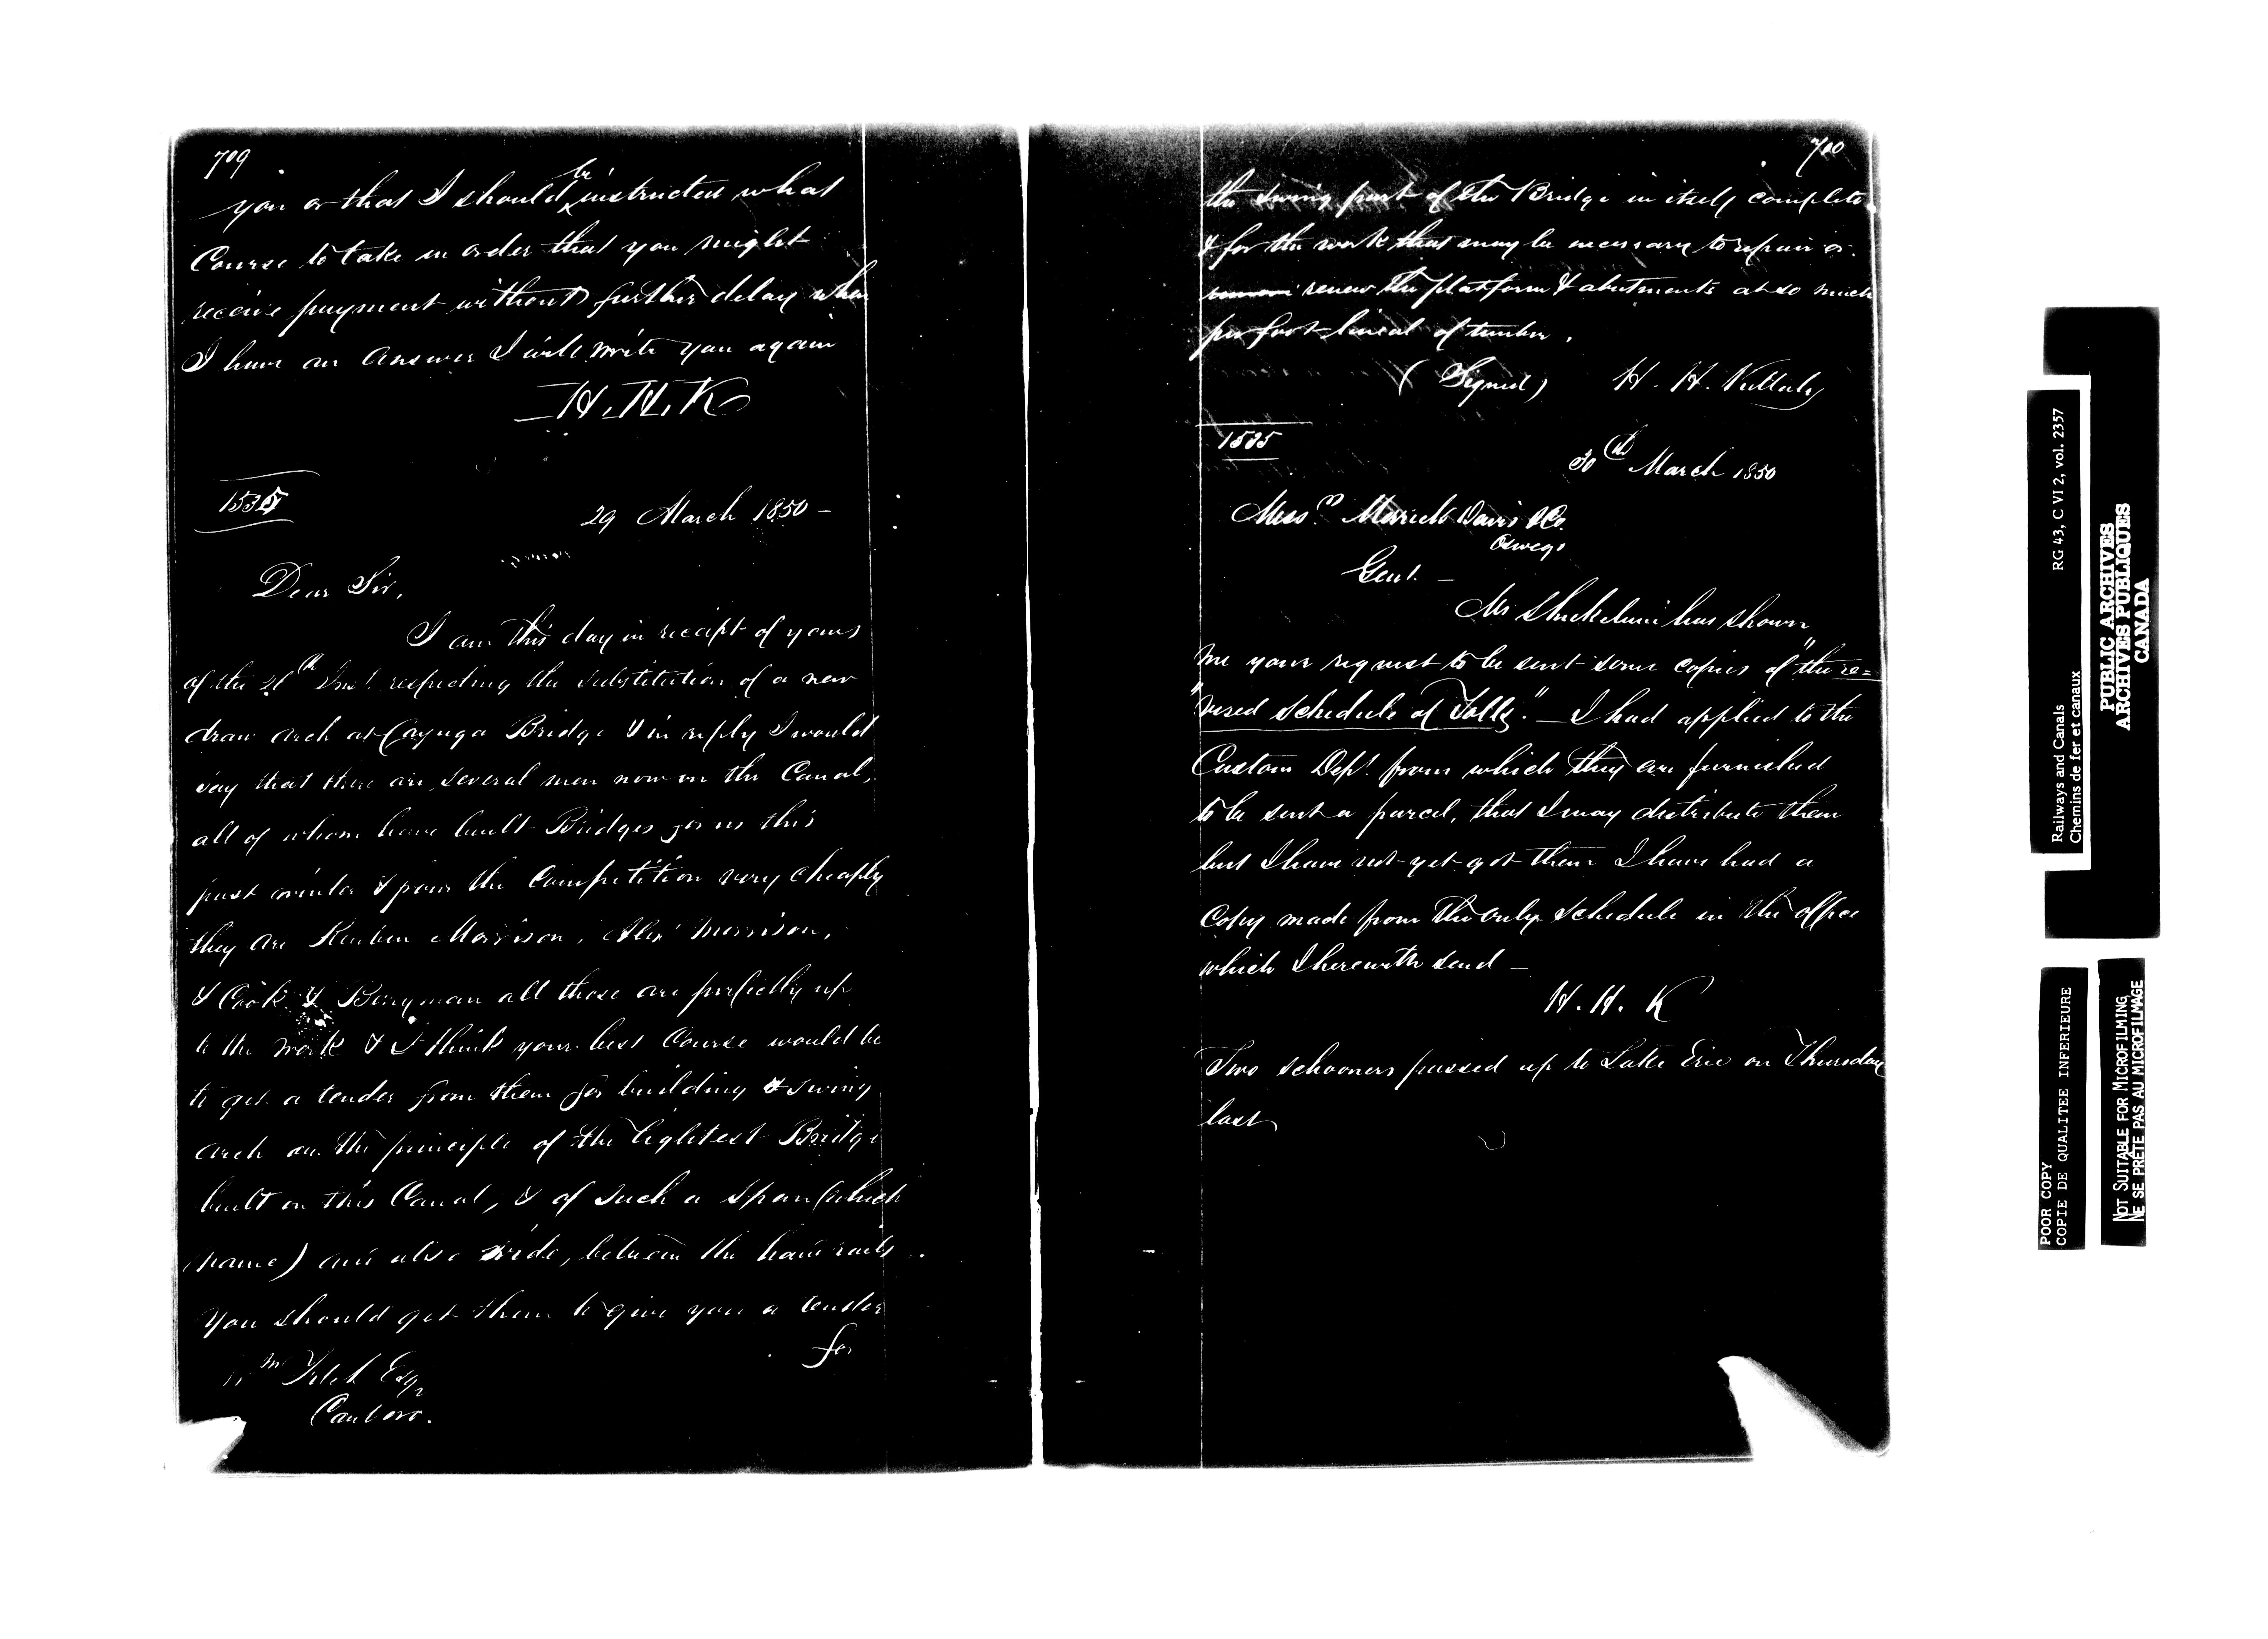 709
you or that I should be instructed what
Course to take in order that you might
receive payment without further delay when
I have an answer I will write you again
H. H. K
1535
29 March 1850 –
Dear Sir,
I am this day in receipt of yours
of the th Inst. respecting the substitution of a new
draw arch at Cayuga Bridge & in reply I would
say that there are several men now on the Canal,
all of whom have built Bridges for us this
past winter & from the Competition very cheaply
they are Reuben Morrison, Alexr Morrison,
& Cook & Berryman all these are perfectly up
to the work & I think your best Course would be
to get a tender from them for building a swing
arch on the principle of the lightest Bridge
built on this Canal, & of such a span (which
name) and also wide, between the hand rails
You should get them to give you a tender
for
Wm Esqr
Canboro.
700
the swing part of the Bridge in itself complete
& for the work that may be necessary to repair or
renew the platform & abutments at so much
per foot lineal of timber.
(Signed) H. H. Killaly
1535
30th March 1850
Messrs Merrick Davis & Co.
Oswego
Gent. –
Mr Shickluna has shown
me your request to be sent some copies of "the re=
"vised schedule of Tolls." – I had applied to the
Custom Dept. from which they are furnished
to be sent a parcel, that I may distribute them
but I have not yet got them I have had a
Copy made from the only schedule in the office
which I herewith send –
H. H. K
Two schooners passed up to Lake Erie on Thursday
last
Railways and Canals RG 43, C VI 2, vol. 2357
Chemins de fer et canaux
PUBLIC ARCHIVES
ARCHIVES PUBLIQUES
CANADA
POOR COPY
COPIE DE QUALITEE INFERIEURE
NOT SUITABLE FOR MICROFILMING
NE SE PRÊTE PAS AU MICROFILMAGE